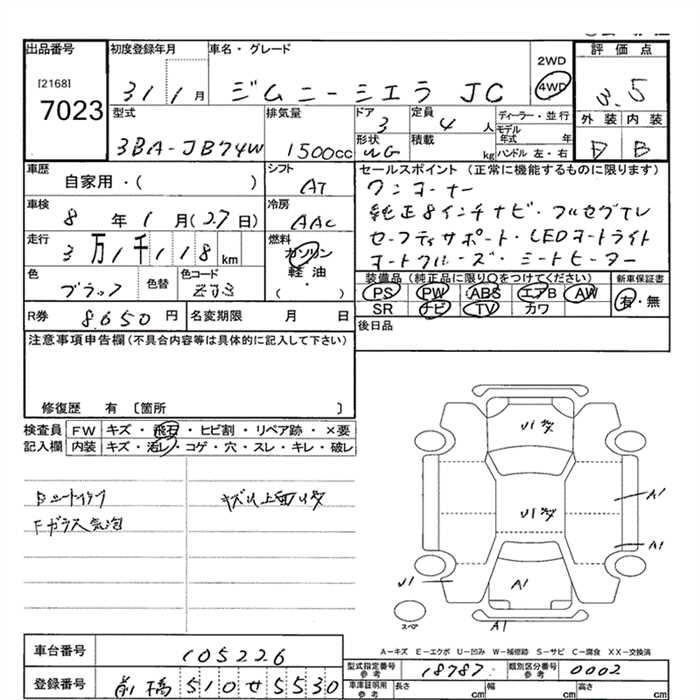 出品番号
[2168]
7023
初度登録年月
31 1 月
車名・グレード
ジムニーシエラ JC
2WD
4WD
評価点
3.5
外装 内装
D B
型式
3BA-JB74W
排気量
1500cc
ドア
3
形状
WG
定員
4 人
積載
kg
ディーラー・並行
モデル年式 年
ハンドル 左・右
車歴
自家用・( )
シフト
AT
車検
8 年 1 月 (27 日)
冷房
AAC
走行
3 万 1 千 1 1 8 km
燃料
ガソリン
軽油
・( )
色
ブラック
色替
色コード
ZJ3
R券
8.650 円
名変期限 月 日
セールスポイント (正常に機能するものに限ります)
ワンオーナー
純正8インチナビ・フルセグTV
セーフティサポート・LEDオートライト
オートクルーズ・シートヒーター
装備品 (純正品に限り○をつけてください)
新車保証書
PS PW ABS エアB AW
有・無
SR ナビ TV カワ
後日品
注意事項申告欄 (不具合内容等は具体的に記入して下さい)
修復歴 有 〔箇所 〕
検査員
記入欄
FW キズ・飛石・ヒビ割・リペア跡・×要
内装 キズ・汚レ・コゲ・穴・スレ・キレ・破レ
Fガラス気泡
U1
U1
A1
A1
A1
U1
A1
スペア
A-キズ E-エクボ U-凹み W-補修跡 S-サビ C-腐食 XX-交換済
車台番号
105226
登録番号
前橋 510 せ 5530
型式指定番号
参考
18787
類別区分番号
参考
0002
車庫証明用
参考
長さ cm
幅 cm
高さ cm